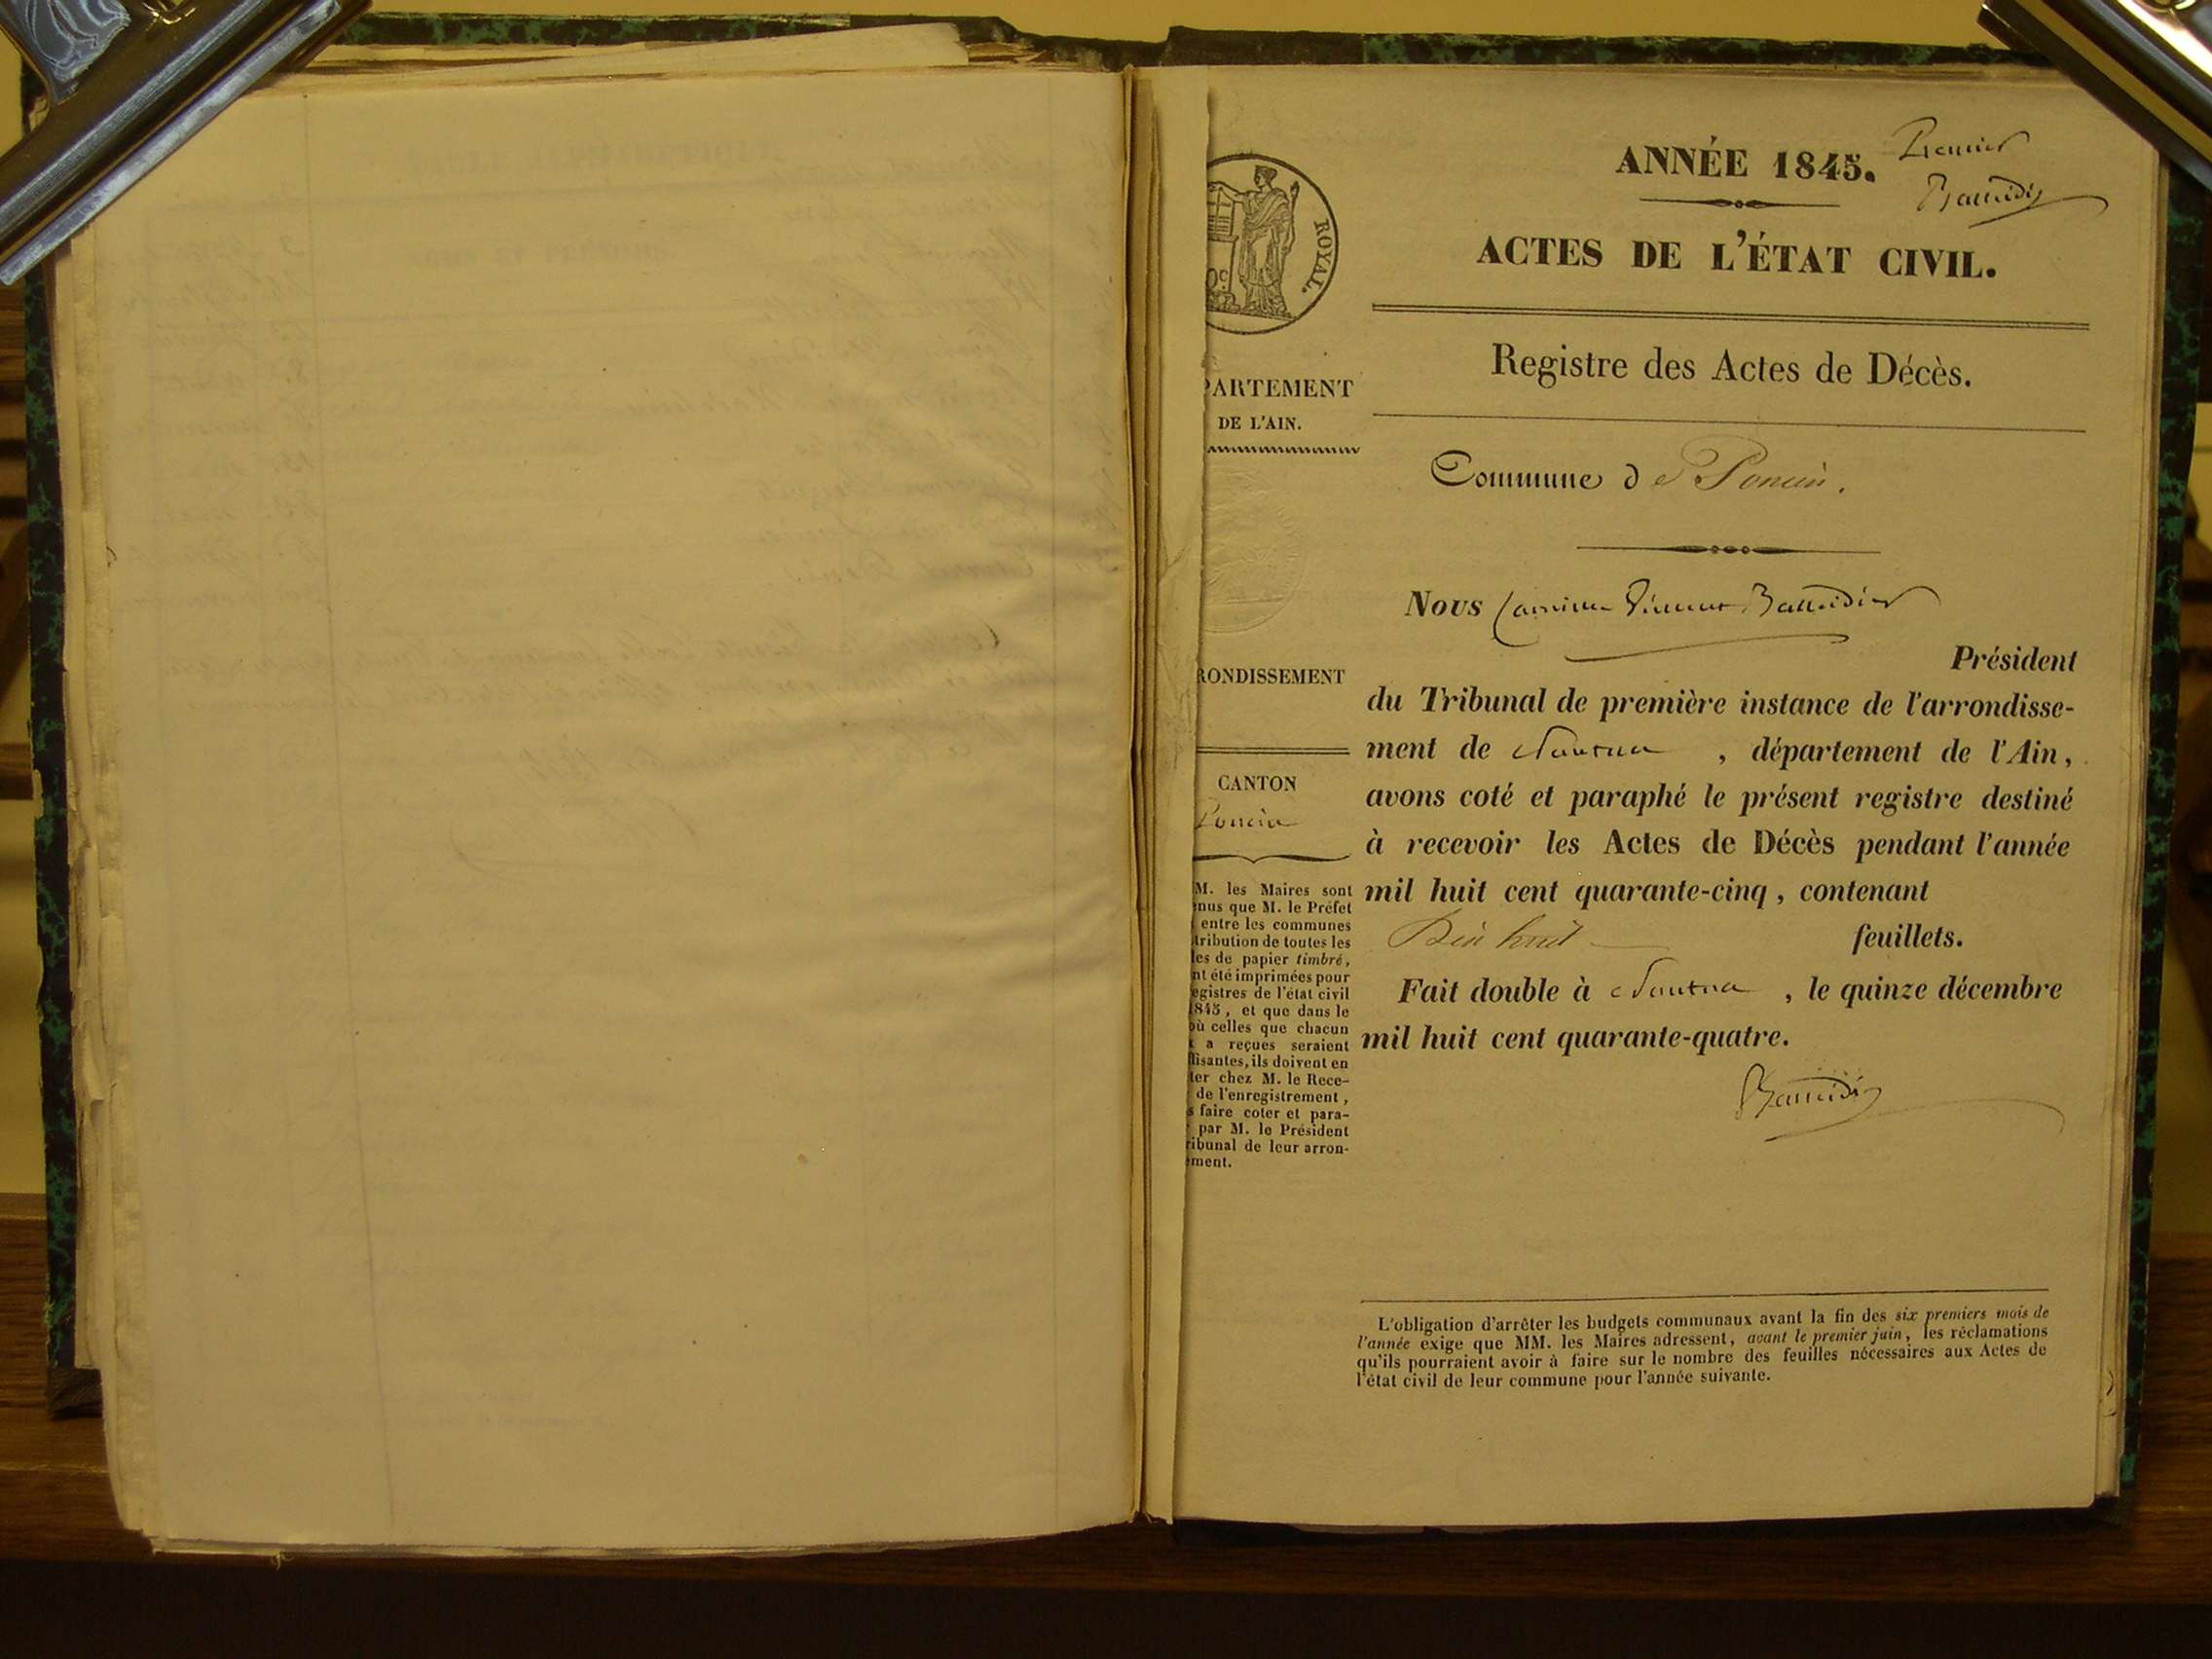 ANNÉE 1845. Premier
ACTES DE L'ÉTAT CIVIL.
Registre des Actes de Décès.
Commune de Poncin.
Nous
Président
du Tribunal de première instance de l'arrondisse-
ment de Nantua , département de l'Ain,
avons coté et paraphé le présent registre destiné
à recevoir les Actes de Décès pendant l'année
mil huit cent quarante-cinq, contenant
Dix huit feuillets.
Fait double à Nantua , le quinze décembre
mil huit cent quarante-quatre.
ROYAL.
PARTEMENT
DE L'AIN.
RONDISSEMENT
CANTON
Poncin
M. les Maires sont
nus que M. le Préfet
entre les communes
tribution de toutes les
les de papier timbré,
nt été imprimées pour
egistres de l'état civil
1845, et que dans le
où celles que chacun
a reçues seraient
fisantes, ils doivent en
ter chez M. le Rece-
de l'enregistrement,
s faire coter et para-
par M. le Président
ribunal de leur arron-
ment.
L'obligation d'arrêter les budgets communaux avant la fin des six premiers mois de
l'année exige que MM. les Maires adressent, avant le premier juin, les réclamations
qu'ils pourraient avoir à faire sur le nombre des feuilles nécessaires aux Actes de
l'état civil de leur commune pour l'année suivante.